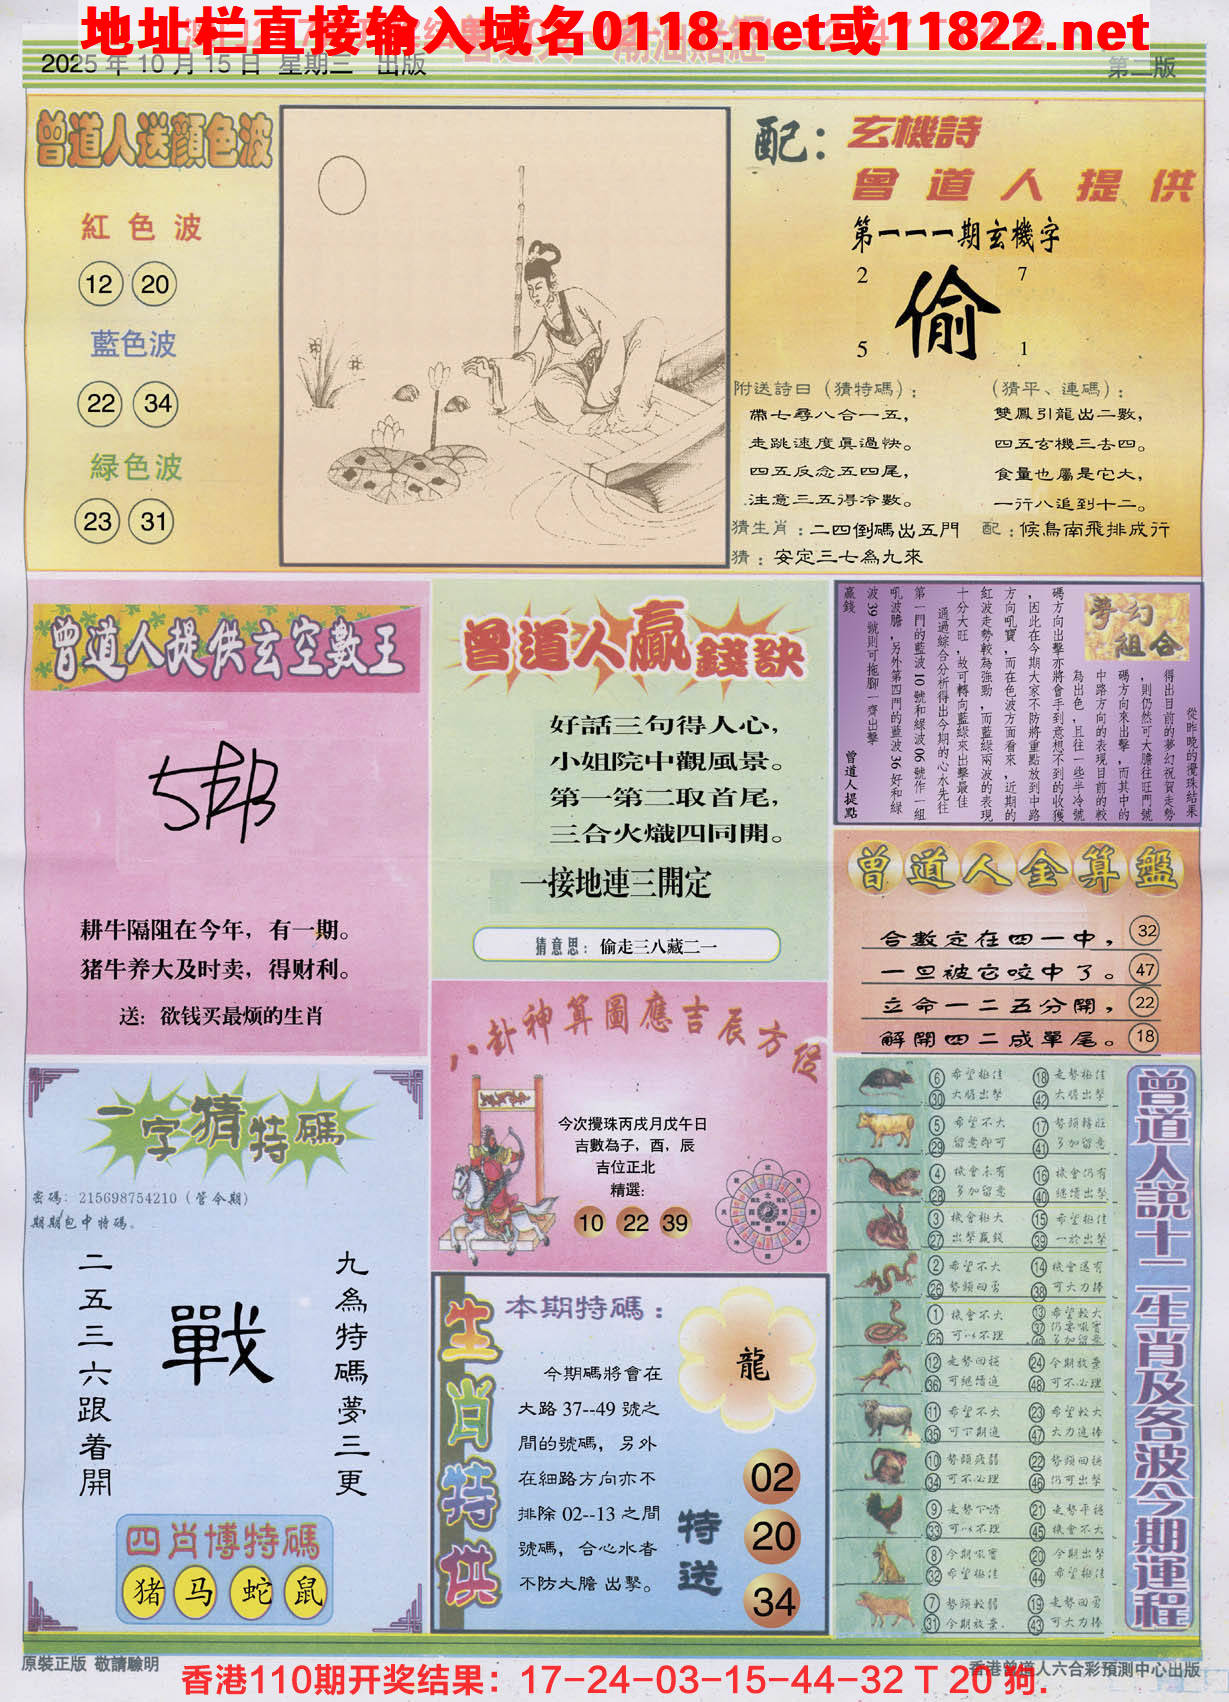 地址栏直接输入域名0118.net或11822.net
2025年10月15日 星期三 出版
第二版
曾道人送顏色波
紅色波
12 20
藍色波
22 34
緑色波
23 31
配：玄機詩
曾道人提供
第一一一期玄機字
2 7
偷
5 1
附送詩曰（猜特碼）：
帶七尋八合一五，
走跳速度真過快。
四五反念五四尾，
注意三五得冷數。
（猜平、連碼）：
雙鳳引龍出二數，
四五玄機三去四。
食量也屬是它大，
一行八追到十二。
猜生肖：二四倒碼出五門
配：候鳥南飛排成行
猜：安定三七為九來
曾道人提供玄空數王
耕牛隔阻在今年，有一期。
猪牛养大及时卖，得财利。
送：欲钱买最烦的生肖
曾道人贏錢訣
好話三句得人心，
小姐院中觀風景。
第一第二取首尾，
三合火熾四同開。
一接地連三開定
猜意思：偷走三八藏二一
夢幻組合
從昨晚的攪珠結果
得出目前的夢幻祝賀走勢
，則仍然可大膽往旺門號
碼方向來出擊，而其中的
中路方向的表現目前的較
為出色，且往一些半冷號
碼方向出擊亦將會手到意想不到的收獲
，因此在今期大家不防將重點放到中路
方向吼寶，而在色波方面看來，近期的
紅波走勢較為強勁，而藍綠兩波的表現
十分大旺，故可轉向藍綠來出擊最佳
通過綜合分析得出今期的心水先往
第一門的藍波10號和綠波06號作一組
吼波膽，另外第四門的藍波36好和綠
波39號則可拖腳一齊出擊
贏錢
曾道人提點
曾道人金算盤
合數定在四一中， 32
一旦被它咬中了。 47
立命一二五分開， 22
解開四二成單尾。 18
八卦神算圖應吉辰方位
今次攪珠丙戌月戊午日
吉數為子，酉，辰
吉位正北
精選:
10 22 39
一字猜特碼
密碼：215698754210（管今期）
期期包中特碼。
二五三六跟着開
戰
九為特碼夢三更
四肖博特碼
猪 马 蛇 鼠
生肖特供
本期特碼：
龍
今期碼將會在
大路37--49號之
間的號碼，另外
在細路方向亦不
排除02--13之間
號碼，合心水者
不防大膽 出擊。
特送
02
20
34
曾道人説十二生肖及各波今期運程
6 30 希望極佳 大膽出擊
18 42 走勢極佳 大膽出擊
5 29 希望不大 留意即可
17 41 勢頭轉旺 多加留意
4 28 機會未有 多加留意
16 40 機會仍有 繼續出擊
3 27 機會極大 出擊贏錢
15 39 希望極佳 一於出擊
2 26 希望不大 勢頭回勇
14 38 機會還有 可大力捧
1 25 機會不大 可以不理
13 37 希望較大 仍要吼實
12 36 走勢回穩 可繼續進
24 48 今期放棄 可不必理
11 35 希望不大 可下期進
23 47 希望較大 大力進捧
10 34 勢頭疲弱 可不必理
22 46 勢頭回穩 仍可出擊
9 33 走勢下滑 可以不理
21 45 走勢平穩 機會不大
8 32 今期吼實 希望極佳
20 44 今期出擊 希望極佳
7 31 勢頭較弱 今期放棄.
19 43 走勢回勇 可大力捧
原裝正版 敬請驗明
香港曾道人六合彩預測中心出版
香港110期开奖结果：17-24-03-15-44-32 T 20 狗.